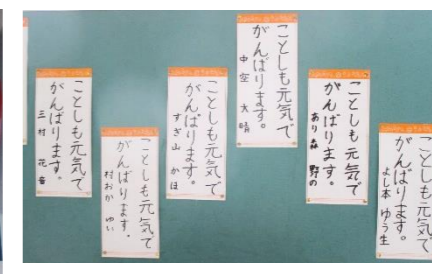 ことしも元気で
がんばります。
三村 花音
ことしも元気で
がんばります。
村おか ゆい
ことしも元気で
がんばります。
すぎ山 かほ
ことしも元気で
がんばります。
中空 大晴
ことしも元気で
がんばります。
あり森 野の
ことしも元気で
がんばります。
よし本 ゆう生